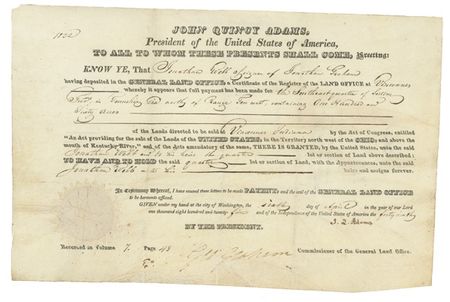 1822
JOHN QUINCY ADAMS,
President of the United States of America,
TO ALL TO WHOM THESE PRESENTS SHALL COME, Greeting:
KNOW YE, That Jonathan Webb assignee of Jonathan
having deposited in the GENERAL LAND OFFICE a Certificate of the Register of the LAND OFFICE at Vincennes
whereby it appears that full payment has been made for the Southeast quarter of Section
in Township Two north, of Range west, containing One Hundred and
Sixty acres
of the Lands directed to be sold at Vincennes Indiana by the Act of Congress, entitled
"An Act providing for the sale of the Lands of the UNITED STATES, in the Territory north west of the OHIO; and above the
mouth of Kentucky River," and of the acts amendatory of the same, THERE IS GRANTED, by the United States, unto the said
Jonathan Webb and to his heirs the quarter lot or section of Land above described;
TO HAVE AND TO HOLD the said quarter lot or section of Land, with the appurtenances, unto the said
Jonathan Webb heirs and assigns forever.
In Testimony Whereof, I have caused these letters to be made PATENT; and the seal of the GENERAL LAND OFFICE
to be hereunto affixed.
GIVEN under my hand at the city of Washington, the sixth day of April in the year of our Lord
one thousand eight hundred and twenty five and of the Independence of the United States of America the forty ninth
BY THE PRESIDENT, J. Q. Adams
Commissioner of the General Land Office.
Recorded in Volume 7. Page 43